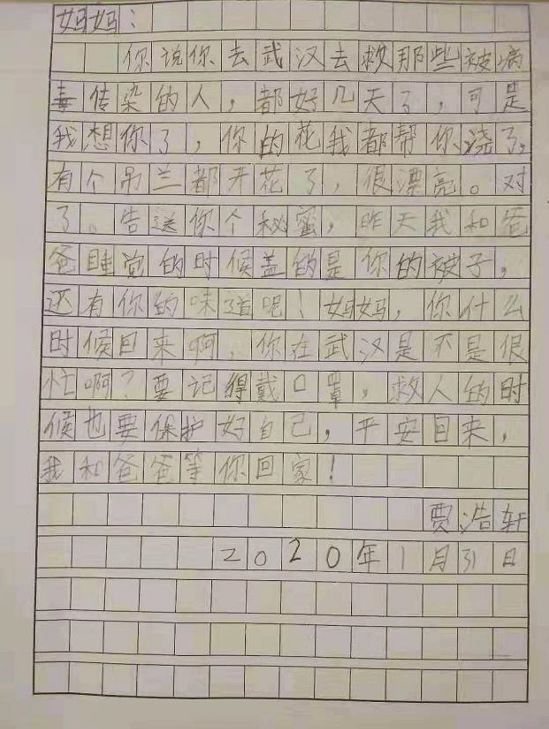 妈妈：
你说你去武汉去救那些被病
毒传染的人，都好几天了，可是
我想你了，你的花我都帮你浇了，
有个吊兰都开花了，很漂亮。对
了。告送你个秘蜜，昨天我和爸
爸睡觉的时候盖的是你的被子，
还有你的味道呢！妈妈，你什么
时候回来啊，你在武汉是不是很
忙啊？要记得戴口罩，救人的时
候也要保护好自己，平安回来，
我和爸爸等你回家！
贾浩轩
2020年1月31日